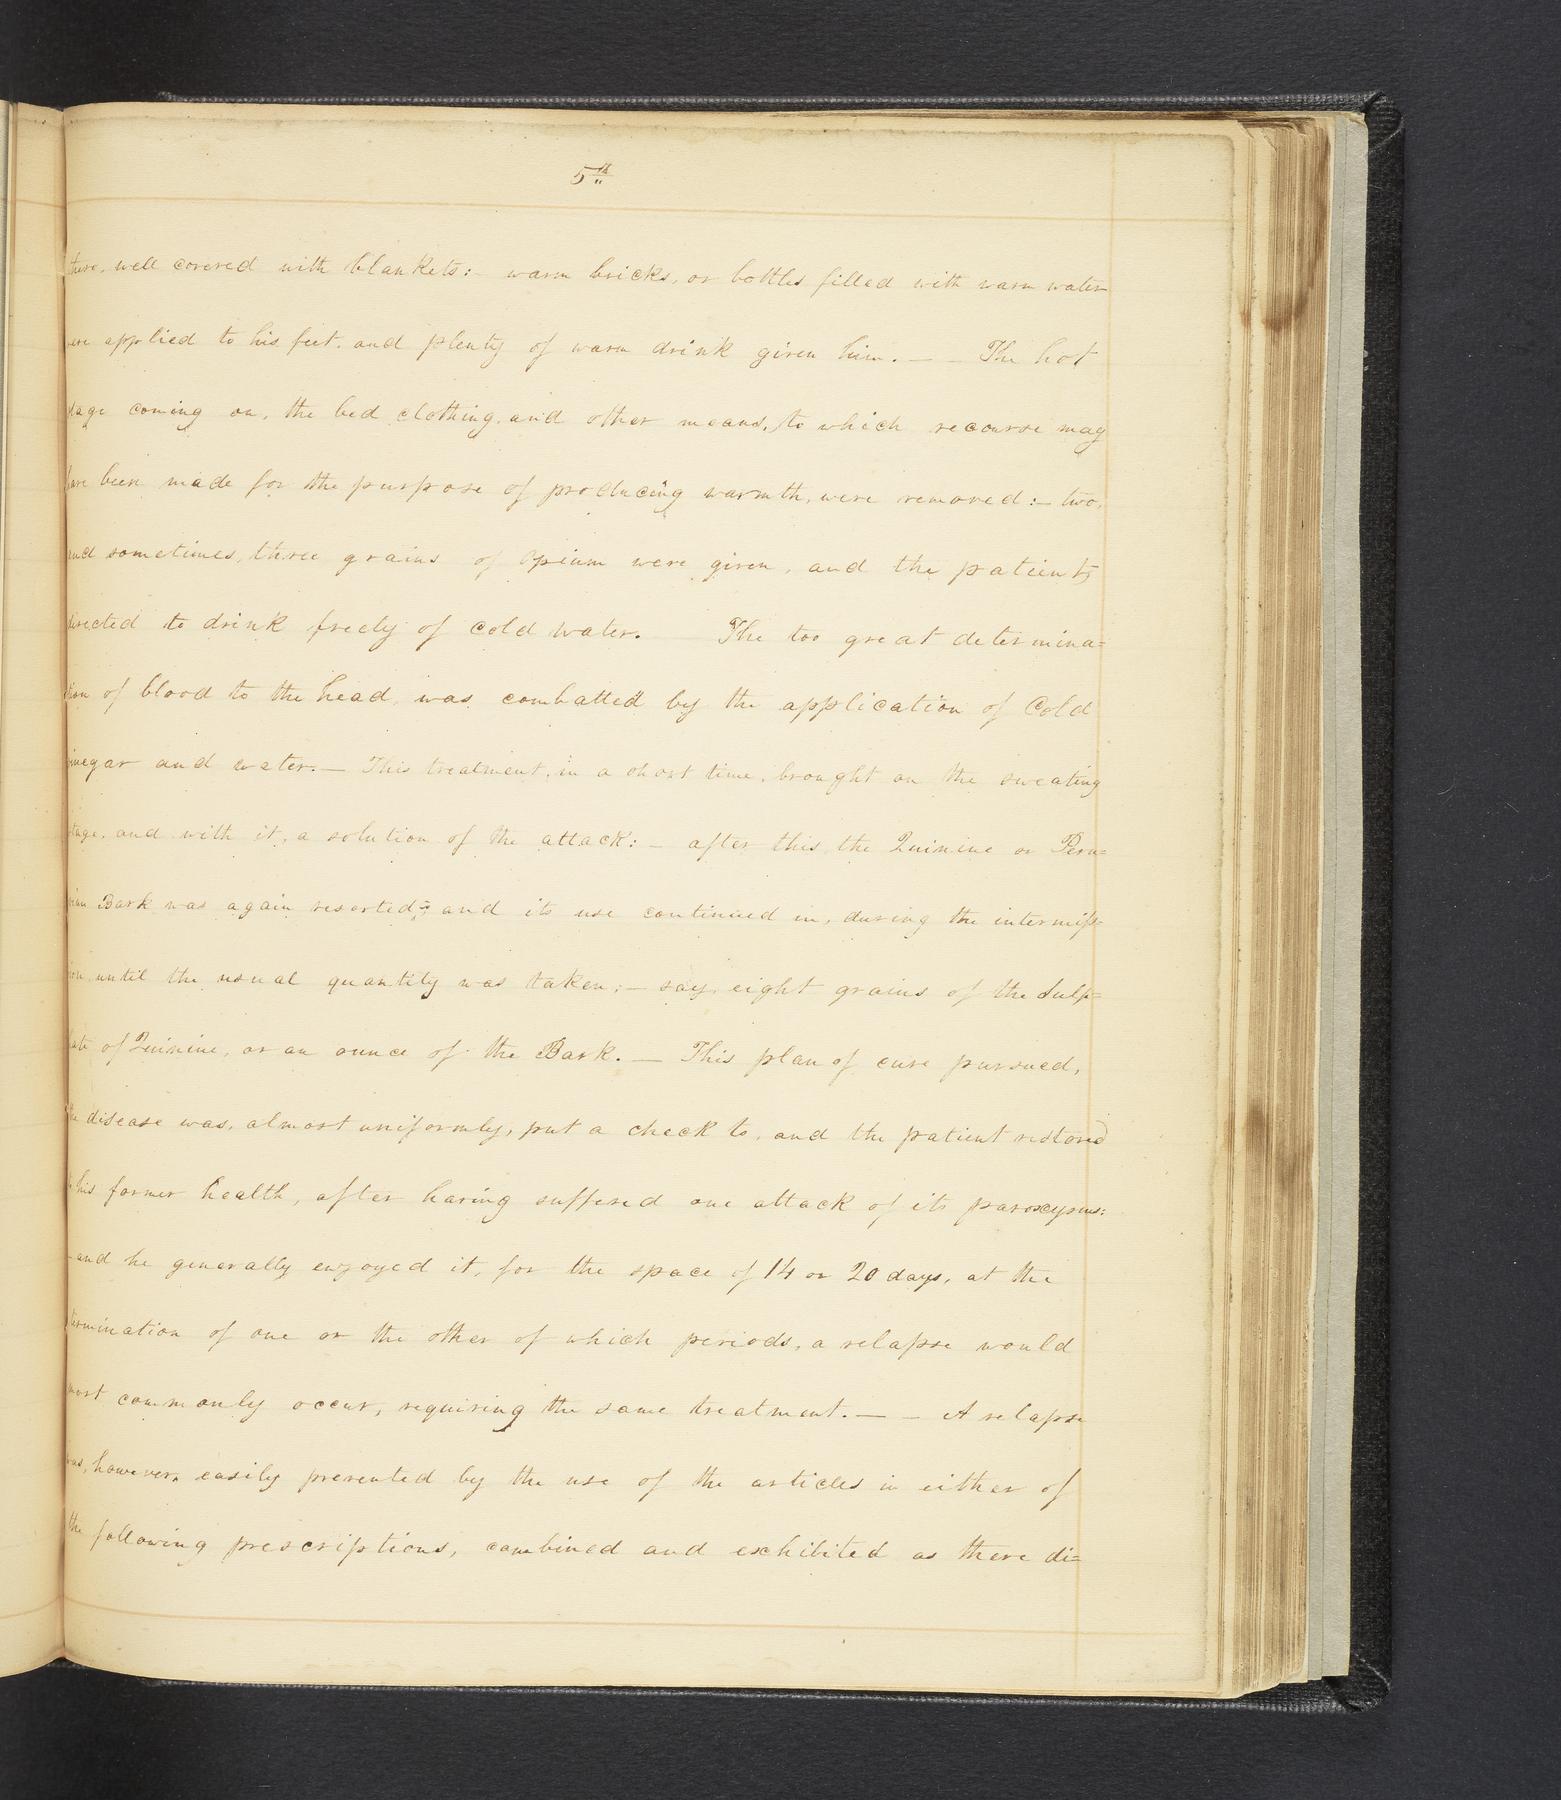 5th
there, well covered with blankets:- warm bricks, or bottles filled with warm water
were applied to his feet, and plenty of warm drink given him. — — The hot
stage coming on, the bed clothing, and other means, to which recourse may
have been made for the purpose of producing warmth, were removed:— two,
and sometimes, three grains of opium were given, and the patient,
directed to drink freely of cold water. The too great determina=
tion of blood to the head, was combatted by the application of Cold
vinegar and water.— This treatment, in a short time, brought on the sweating
stage, and with it, a solution of the attack:— after this, the Quinine or Peru=
vian Bark was again resorted, and its use continued in, during the intermiss=
ion, until the usual quantity was taken;— say, eight grains of the Sulp=
hate of Quinine, or an ounce of the Bark. — This plan of cure pursued,
the disease was, almost uniformly, put a check to, and the patient restored
to his former health, after having suffered one attack of its paroxysms:
— and he generally enjoyed it, for the space of 14 or 20 days, at the
termination of one or the other of which periods, a relapse would
most commonly occur, requiring the same treatment. — — A relapse
was, however, easily prevented by the use of the articles in either of
the following prescriptions, combined and exhibited as there di=